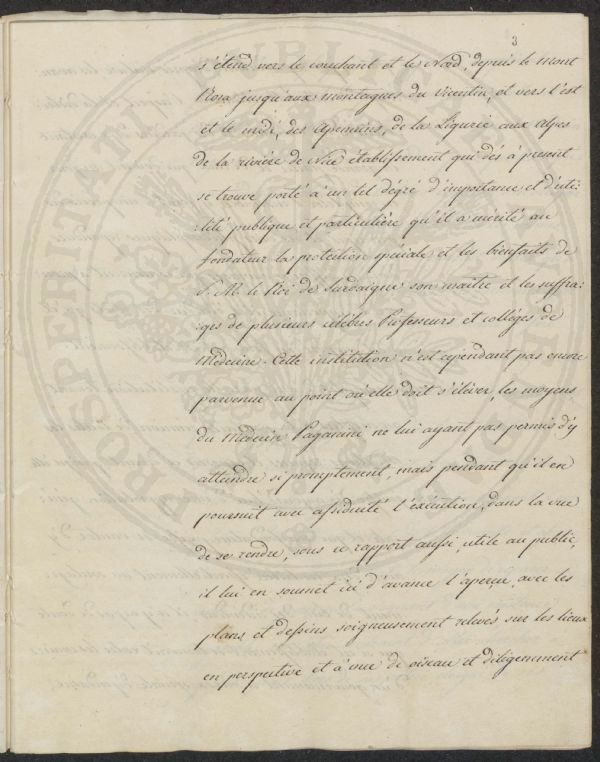 3
s'étend vers le couchant et le Nord, depuis le Mont
Rosa jusqu'aux montagnes du Vicentin, et vers l'est
et le midi, des Apennins, de la Ligurie aux Alpes
de la rivière de Nice établissement qui dés à présent
se trouve porté à un tel dégré d'importance et d'uti:
:lité publique et particulière qu'il a mérité au
fondateur la protection spéciale et les bienfaits de
S. M. le Roi de Sardaigne son maitre et les suffra:
:ges de plusieurs célébres Professeurs et colléges de
Médecine. Cette institution n'est cependant pas encore
parvenue au point où elle doit s'éléver, les moyens
du Médecin Paganini ne lui ayant pas permis d'y
atteindre si promptement, mais pendant qu'il en
poursuit avec assiduité l'exécution, dans la vue
de se rendre, sous ce rapport aussi, utile au public,
il lui en soumet ici d'avance l'aperçu, avec les
plans et dessins soigneusement relevés sur les lieux
en perspective et à vue de oiseau et diligemment
PROSPERITATI PUBLICAE